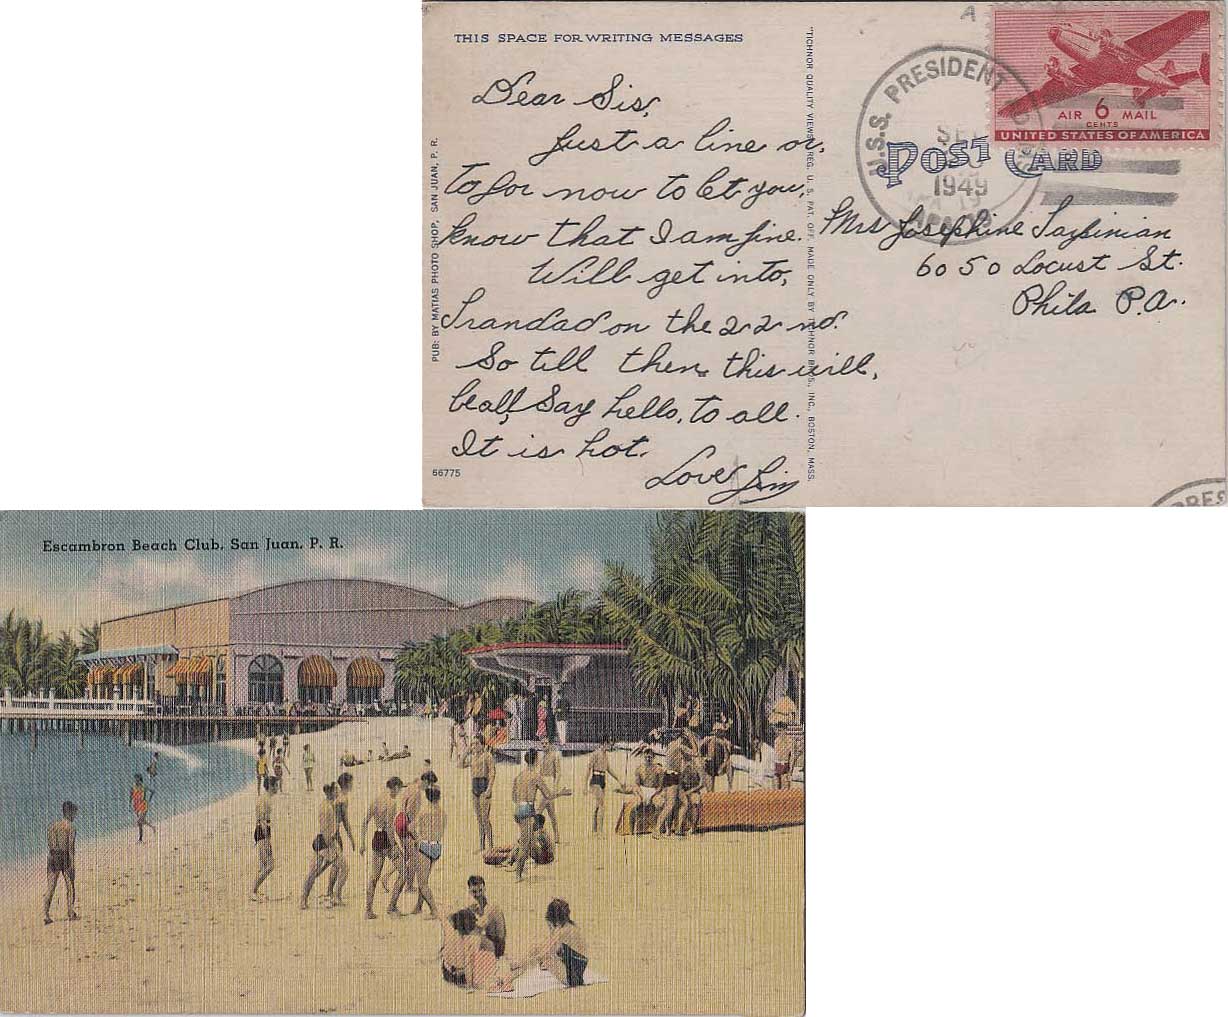 THIS SPACE FOR WRITING MESSAGES
Dear Sis,
Just a line or,
to for now to let you,
know that I am fine.
Will get into,
Trandad on the 22 nd.
So till then this will,
be all, Say hello, to all.
It is hot.
Love Jim
PUB: BY MATIAS PHOTO SHOP, SAN JUAN, P. R.
66775
"TICHNOR QUALITY VIEWS," REG. U. S. PAT. OFF. MADE ONLY BY TICHNOR BROS., INC., BOSTON, MASS.
POST CARD
U.S.S. PRESIDENT
1949
AIR 6 MAIL
CENTS
UNITED STATES OF AMERICA
Mrs Josephine
6050 Locust St.
Phila P.A.
PRES
Escambron Beach Club, San Juan, P. R.